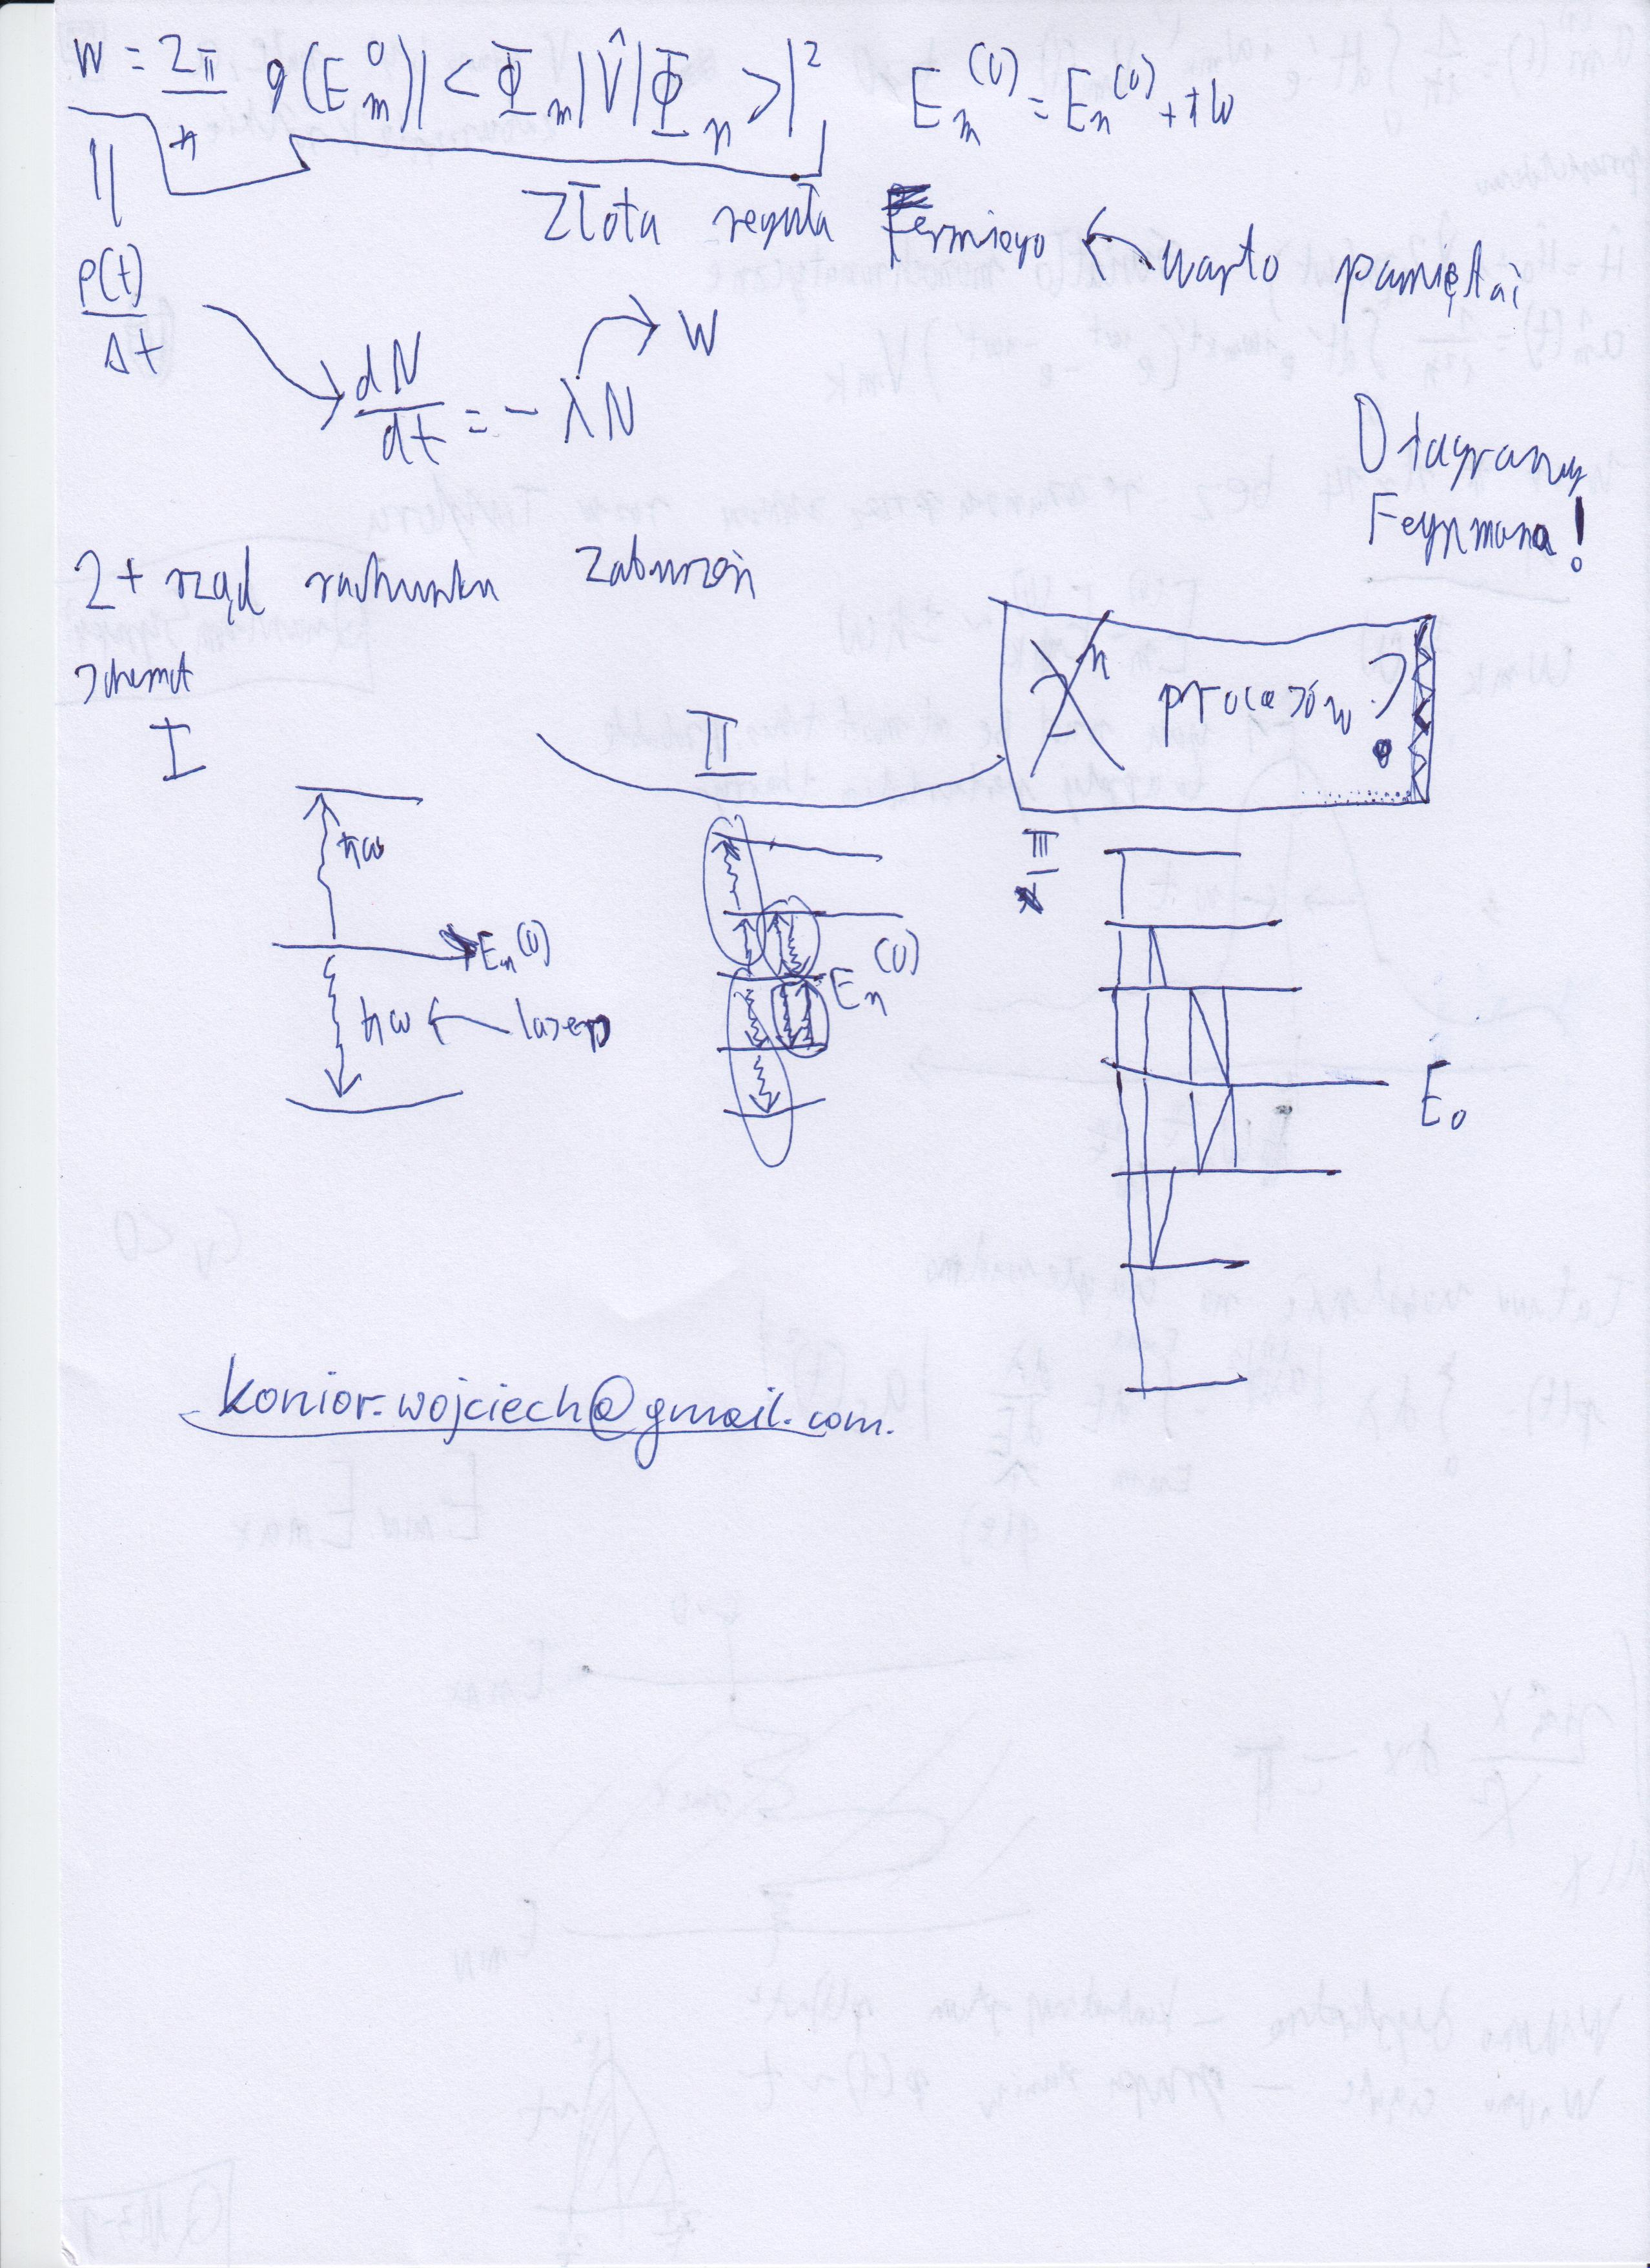 W = 2π/ħ ρ(E_m^0)|<Φ_m|V̂|Φ_n>|², E_m^(0) = E_n^(0) + ħω
||
Złota reguła Fermiego ← warto pamiętać
p(t)/Δt
→ W
dN/dt = - λN
Diagramy
Feynmana!
2+ rząd rachunku zaburzeń
schemat
I
II
2^n procesów?
III
ħω
E_n^(0)
ħω ← laserp
E_n^(0)
E_0
konior.wojciech@gmail.com.